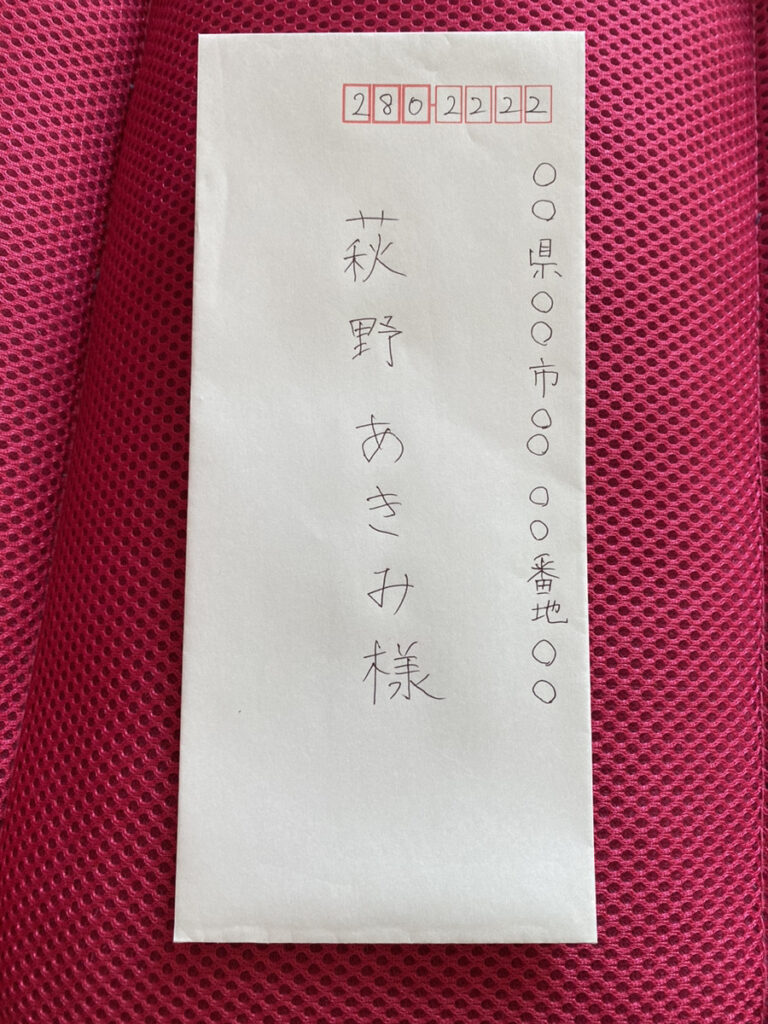 280-2222
○○県○○市○○ ○○番地○○
萩野あきみ様